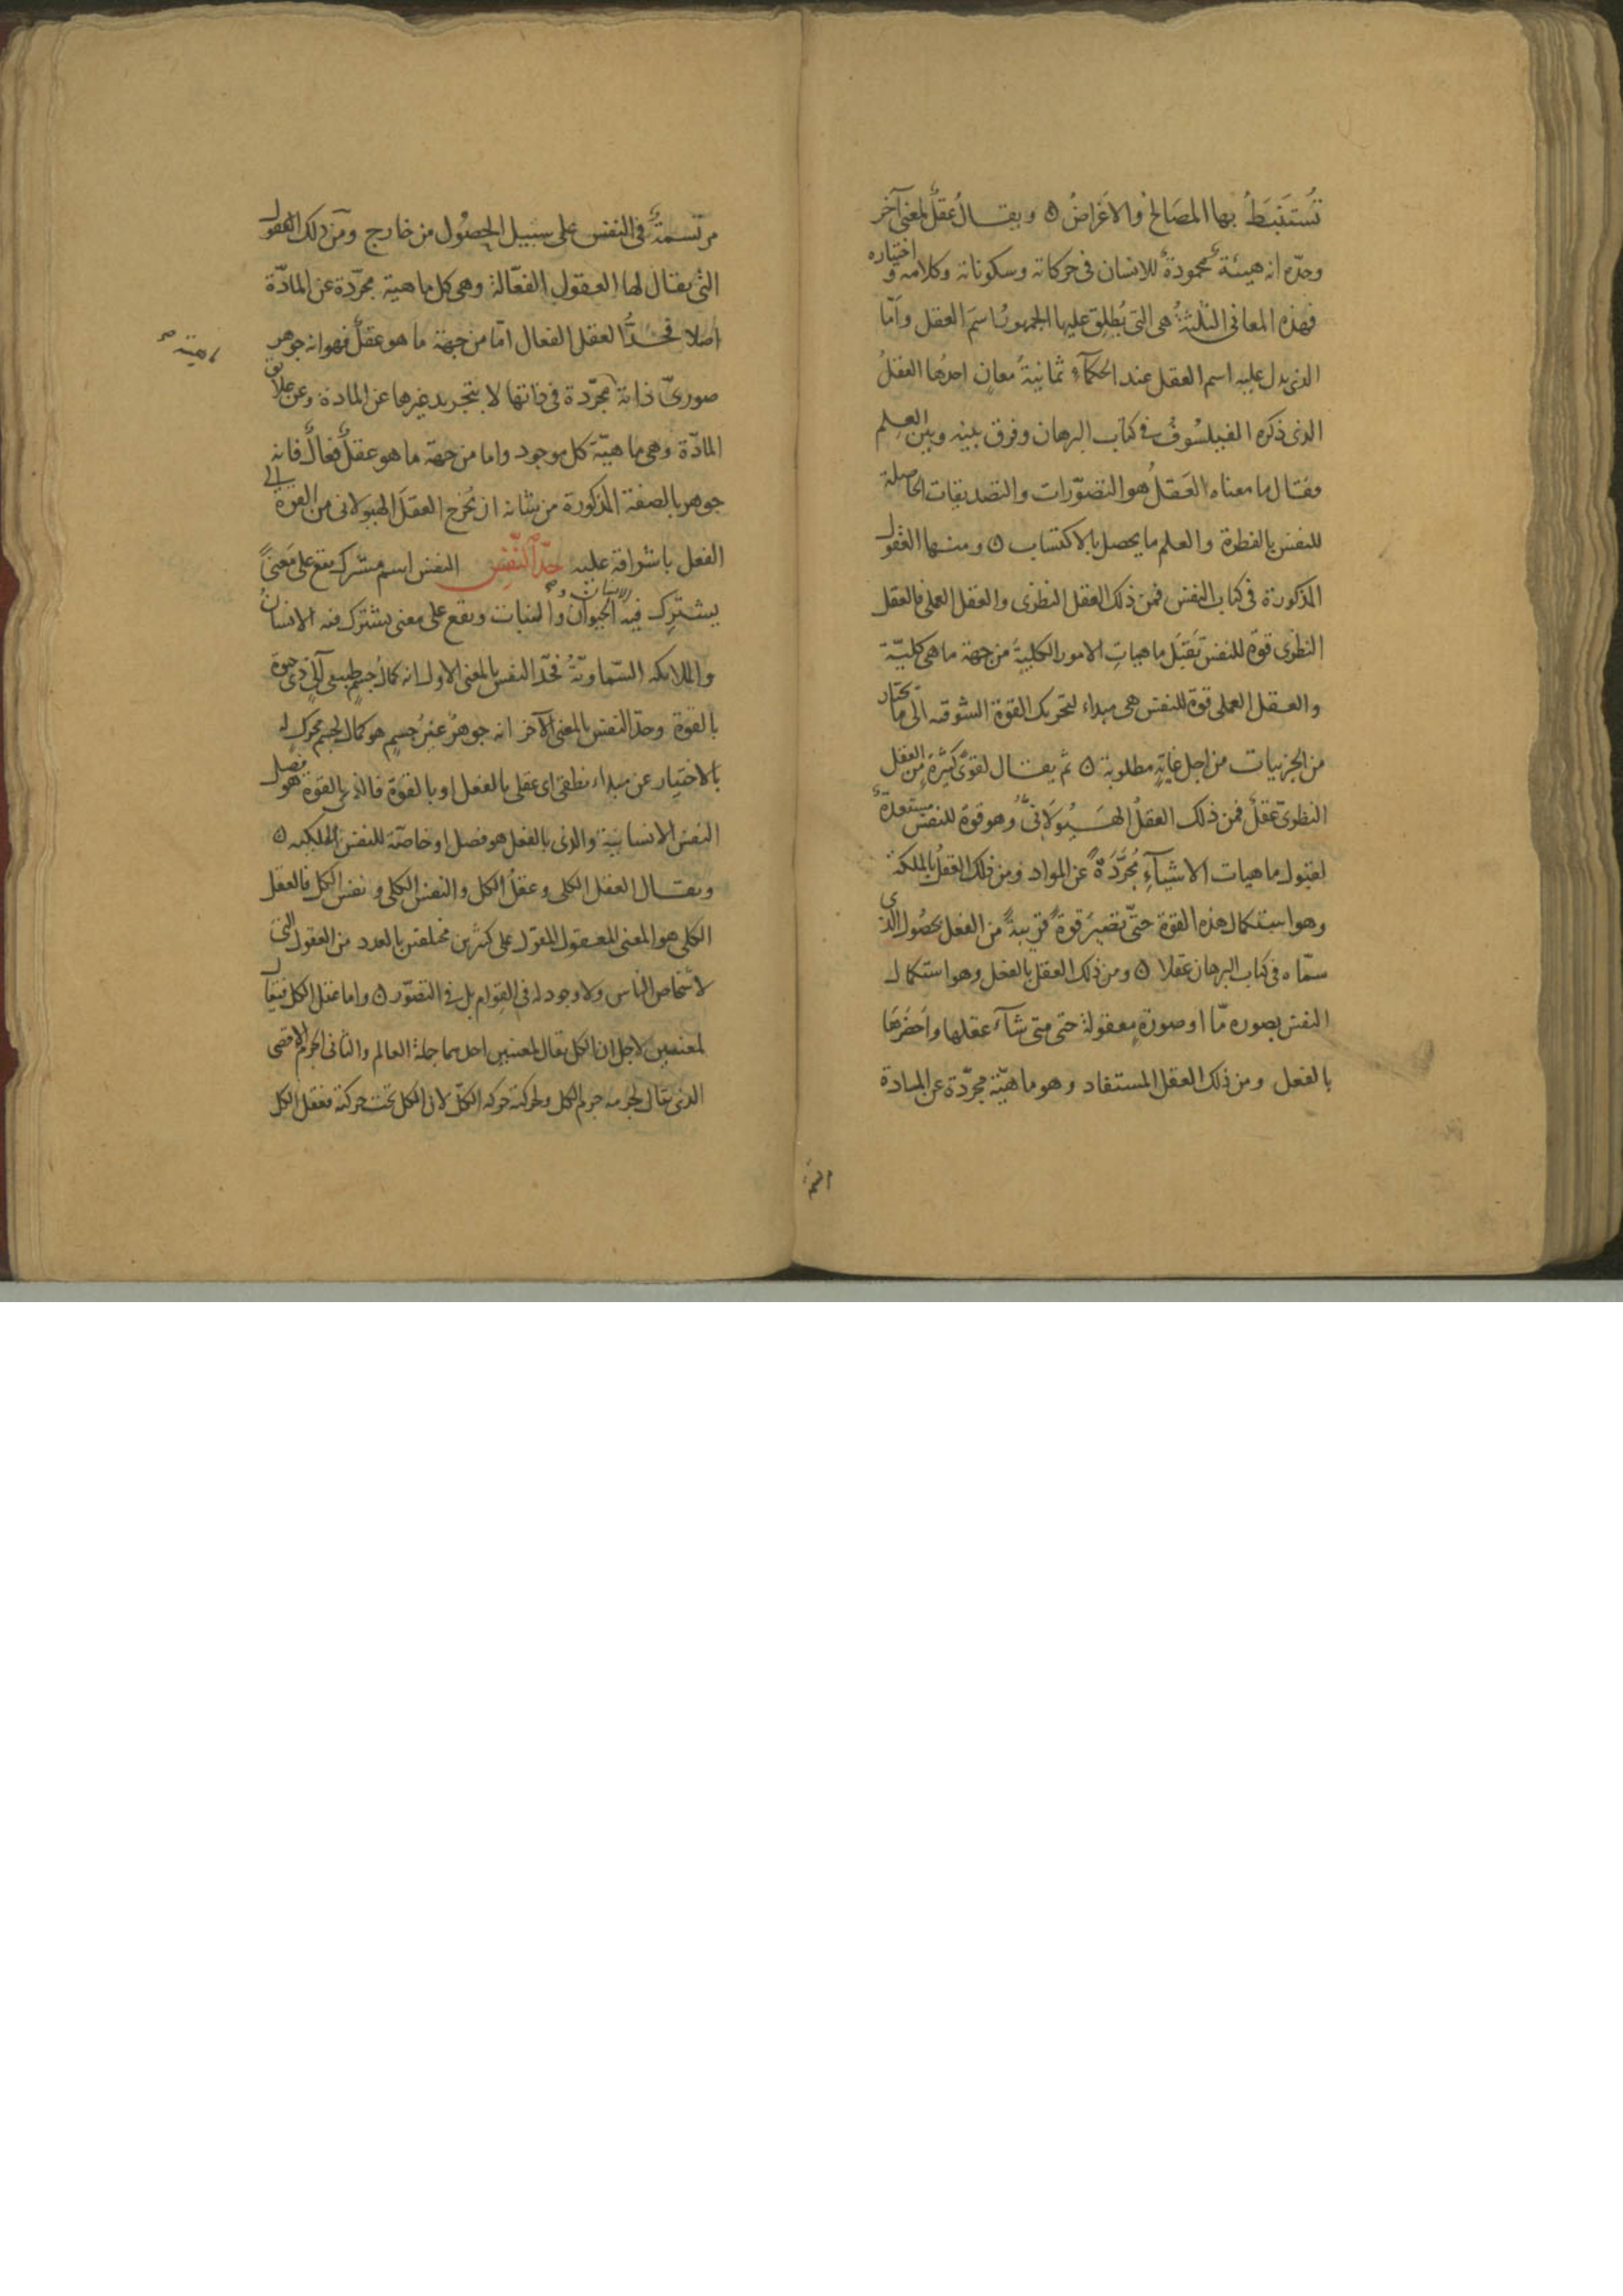 تُستَنبَطُ بها المصَالح والاغراضُ ه ويقال عقلٌ لمعنى آخر
وحدّه انه هيئة محمودة للانسان في حركاته وسكوناته وكلامه و اختياره
فهذه المعاني الثلثةُ هي التي يُطلِق عليها الجمهورُ اسمَ العقل وامّا
الذي يدل عليه اسم العقل عند الحكمآء ثمانيةُ معانٍ احدُها العقلُ
الذي ذكره الفيلسُوفُ في كتاب البرهان وفرق بينه وبين العِلم
فقال ما معناه العَقلُ هو التصوّرات والتصديقات الحاصلة
للنفس بالفطرة والعلم ما يحصل بالاكتساب ه ومنها العُقول
المذكورة في كتاب النفس فمن ذلك العقل النظري والعقل العملي فالعقل
النظرى قوّة للنفس تَقبَل ماهيات الامور الكلية من جهة ما هى كليّة
والعقل العملي قوّة للنفس هى مبداء لتحريك القوّة الشوقيه الى ما تختار
من الجزئيات من اجل غايةٍ مطلوبةٍ ه ثم يقال لقوًى كثيرة من العقل
النظرىّ عقلٌ فمن ذلك العقلُ الهَيُولَانىُّ وهو قوة للنفس مستعدّة
لقبول ماهيات الاشيآءِ مُجرَّدَةً عن المواد ومن ذلك العقلُ بالملكة
وهو استكمال هذه القوّة حتّى تصَيرَ قوةً قريبةً من الفعل بحصُول الذى
سمّاه في كتاب البرهان عقلا ه ومن ذلك العقل بالفعل وهو استكمال
النفس بصوره مّا او صورةٍ معقولة حتى متى شآء عقلها واَحضَرَهَا
بالفعل ومن ذلك العقل المستفاد وهو ماهيّة مجرّدة عن المادة
مرتسمةٌ فى النفس على سبيل الحصُول من خارج ومن ذلك العقول
التى يقال لها العقول الفعّالة وهى كل ماهية مجرّدة عن المادّة
اصلا فحَدُّ العقل الفعال امّا من جهة ما هو عقلٌ فهو انه جوهر
صورىّ ذاته مجرّدة في ذاتها لا بتجريد غيرها عن المادة وعن علائق
ماهية صح
المادّة وهى ماهيّة كل موجود واما من جهة ما هو عقلٌ فعالٌ فانه
جوهر بالصفة المذكورة من شانه ان يُخرج العقلَ الهيولانى من القوة الى
الفعل باشراقه عليه حدّ النّفس النفس اسم مشترك يقع على معنىً
يشترك فيه الانسان و صح الحيوان والنبات ويقع على معنى يشترك فيه الانسانُ
والملائكه السّماويّةُ فحدّ النفس بالمعنى الاول انه كمال جسمٍ طبيعى آلىٍّ ذى حيوة
بالقوّة وحدّ النفس بالمعنى الآخر انه جوهرٌ غيرُ جسمٍ هو كمالٌ لجسمٍ محركٌ له
بالاختيار عن مبداء نطقىّ اى عقلى بالفعل او بالقوّة فالذى بالقوّة هو فصل
النفس الانسانية والذى بالفعل هو فصل او خاصّة للنفس الملكيه ه
ويقال العقل الكلى وعقلُ الكل والنفس الكلى ونفس الكل فالعقل
الكلى هو المعنى المعقول المقول على كثيرين مختلفين بالعدد من العقول التى
لاشخاص الناس ولا وجود له فى القوام بل فى التصوّر ه واما عقل الكل فيقال
لمعنيين لاجل ان الكل يقال لمعنيين احدهما جملة العالم والثانى الجرم الاقصى
الذى يقال لجرمه جرم الكل ولحركته حركه الكلّ لان الكل تحت حركته فعقل الكل